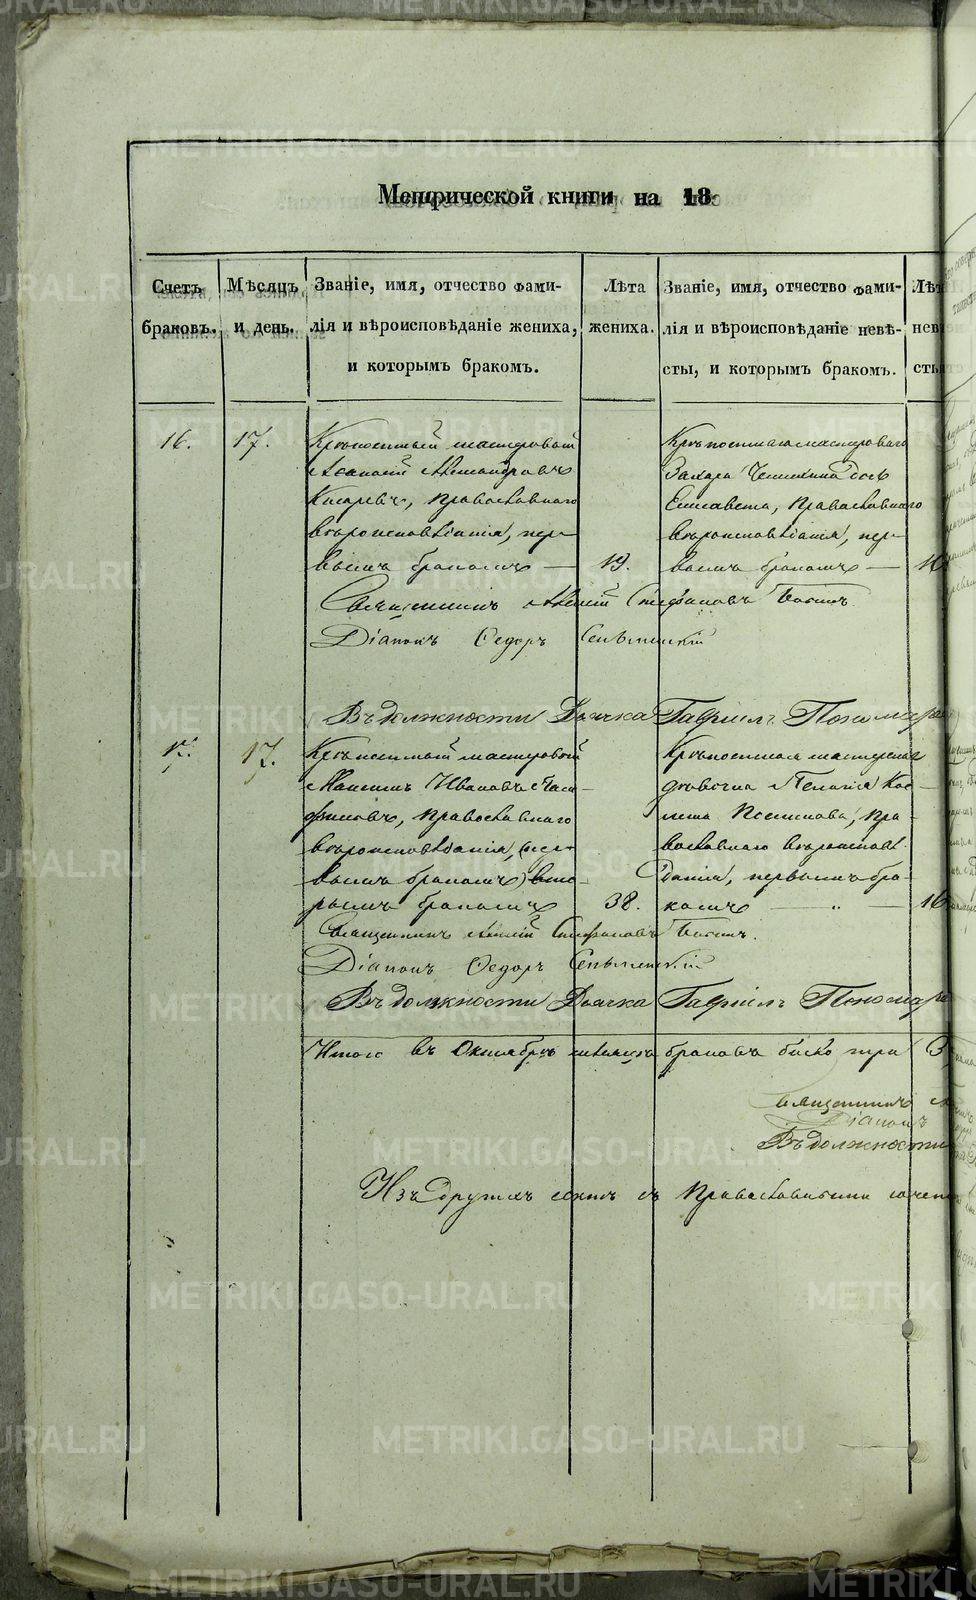 Метрической книги на 18
Счетъ браковъ.
Мѣсяцъ и день.
Званіе, имя, отчество фами-
лія и вѣроисповѣданіе жениха,
и которымъ бракомъ.
Лѣта
жениха.
Званіе, имя, отчество фами-
лія и вѣроисповѣданіе невѣ-
сты, и которымъ бракомъ.
Лѣт
нев
сты
16.
17.
Крѣпостный мастеровой
Александровъ
Писаревъ, Православнаго
вѣроисповѣданія, пер-
вымъ бракомъ —
19.
Крѣпостнаго мастероваго
Захара дочь
Елисавета, Православнаго
вѣроисповѣданія, пер-
вымъ бракомъ —
16
Священникъ Алексій Стефановъ
Діаконъ Ѳедоръ
Въ должности Дьячка Гавріилъ Пономар
17.
17.
Крѣпостный мастеровой
Максимъ Ивановъ
Православнаго
вѣроисповѣданія, (пер-
вымъ бракомъ) вто-
рымъ бракомъ
38.
Крѣпостная мастерская
дѣвица Пелагія Кос-
Пра-
вославнаго вѣроисповѣ-
данія, первымъ бра-
комъ — „ —
16
Священникъ Алексій Стефановъ
Діаконъ Ѳедоръ
Въ должности Дьячка Гавріилъ Пономаре
Итого въ Октябрѣ мѣсяцѣ браковъ было три 3
Священникъ А
Діаконъ
Въ должности
Изъ другихъ сектъ съ Православными сочет
METRIKI.GASO-URAL.RU